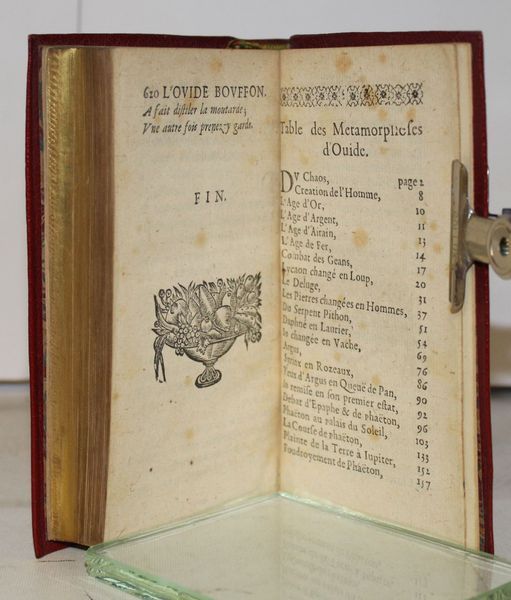 620 L'OVIDE BOVFFON.
A fait distiler la moutarde;
Vne autre fois prenez y garde.
FIN.
Table des Metamorphoses
d'Ouide.
DV Chaos, page 2
Creation de l'Homme, 8
L'Age d'Or, 10
L'Age d'Argent, 11
L'Age d'Airain, 13
L'Age de Fer, 14
Combat des Geans, 17
Lycaon changé en Loup, 20
Le Deluge, 31
Les Pierres changées en Hommes, 37
Du Serpent Pithon, 51
Daphné en Laurier, 54
Io changée en Vache, 69
Argus, 76
Syrinx en Rozeaux, 86
Yeux d'Argus en Queuë de Pan, 90
Io remise en son premier estat, 92
Debat d'Epaphe & de phaëton, 96
Phaëton au palais du Soleil, 103
La Course de Phaëton, 133
Plainte de la Terre à Iupiter, 152
Foudroyement de Phaëton, 157